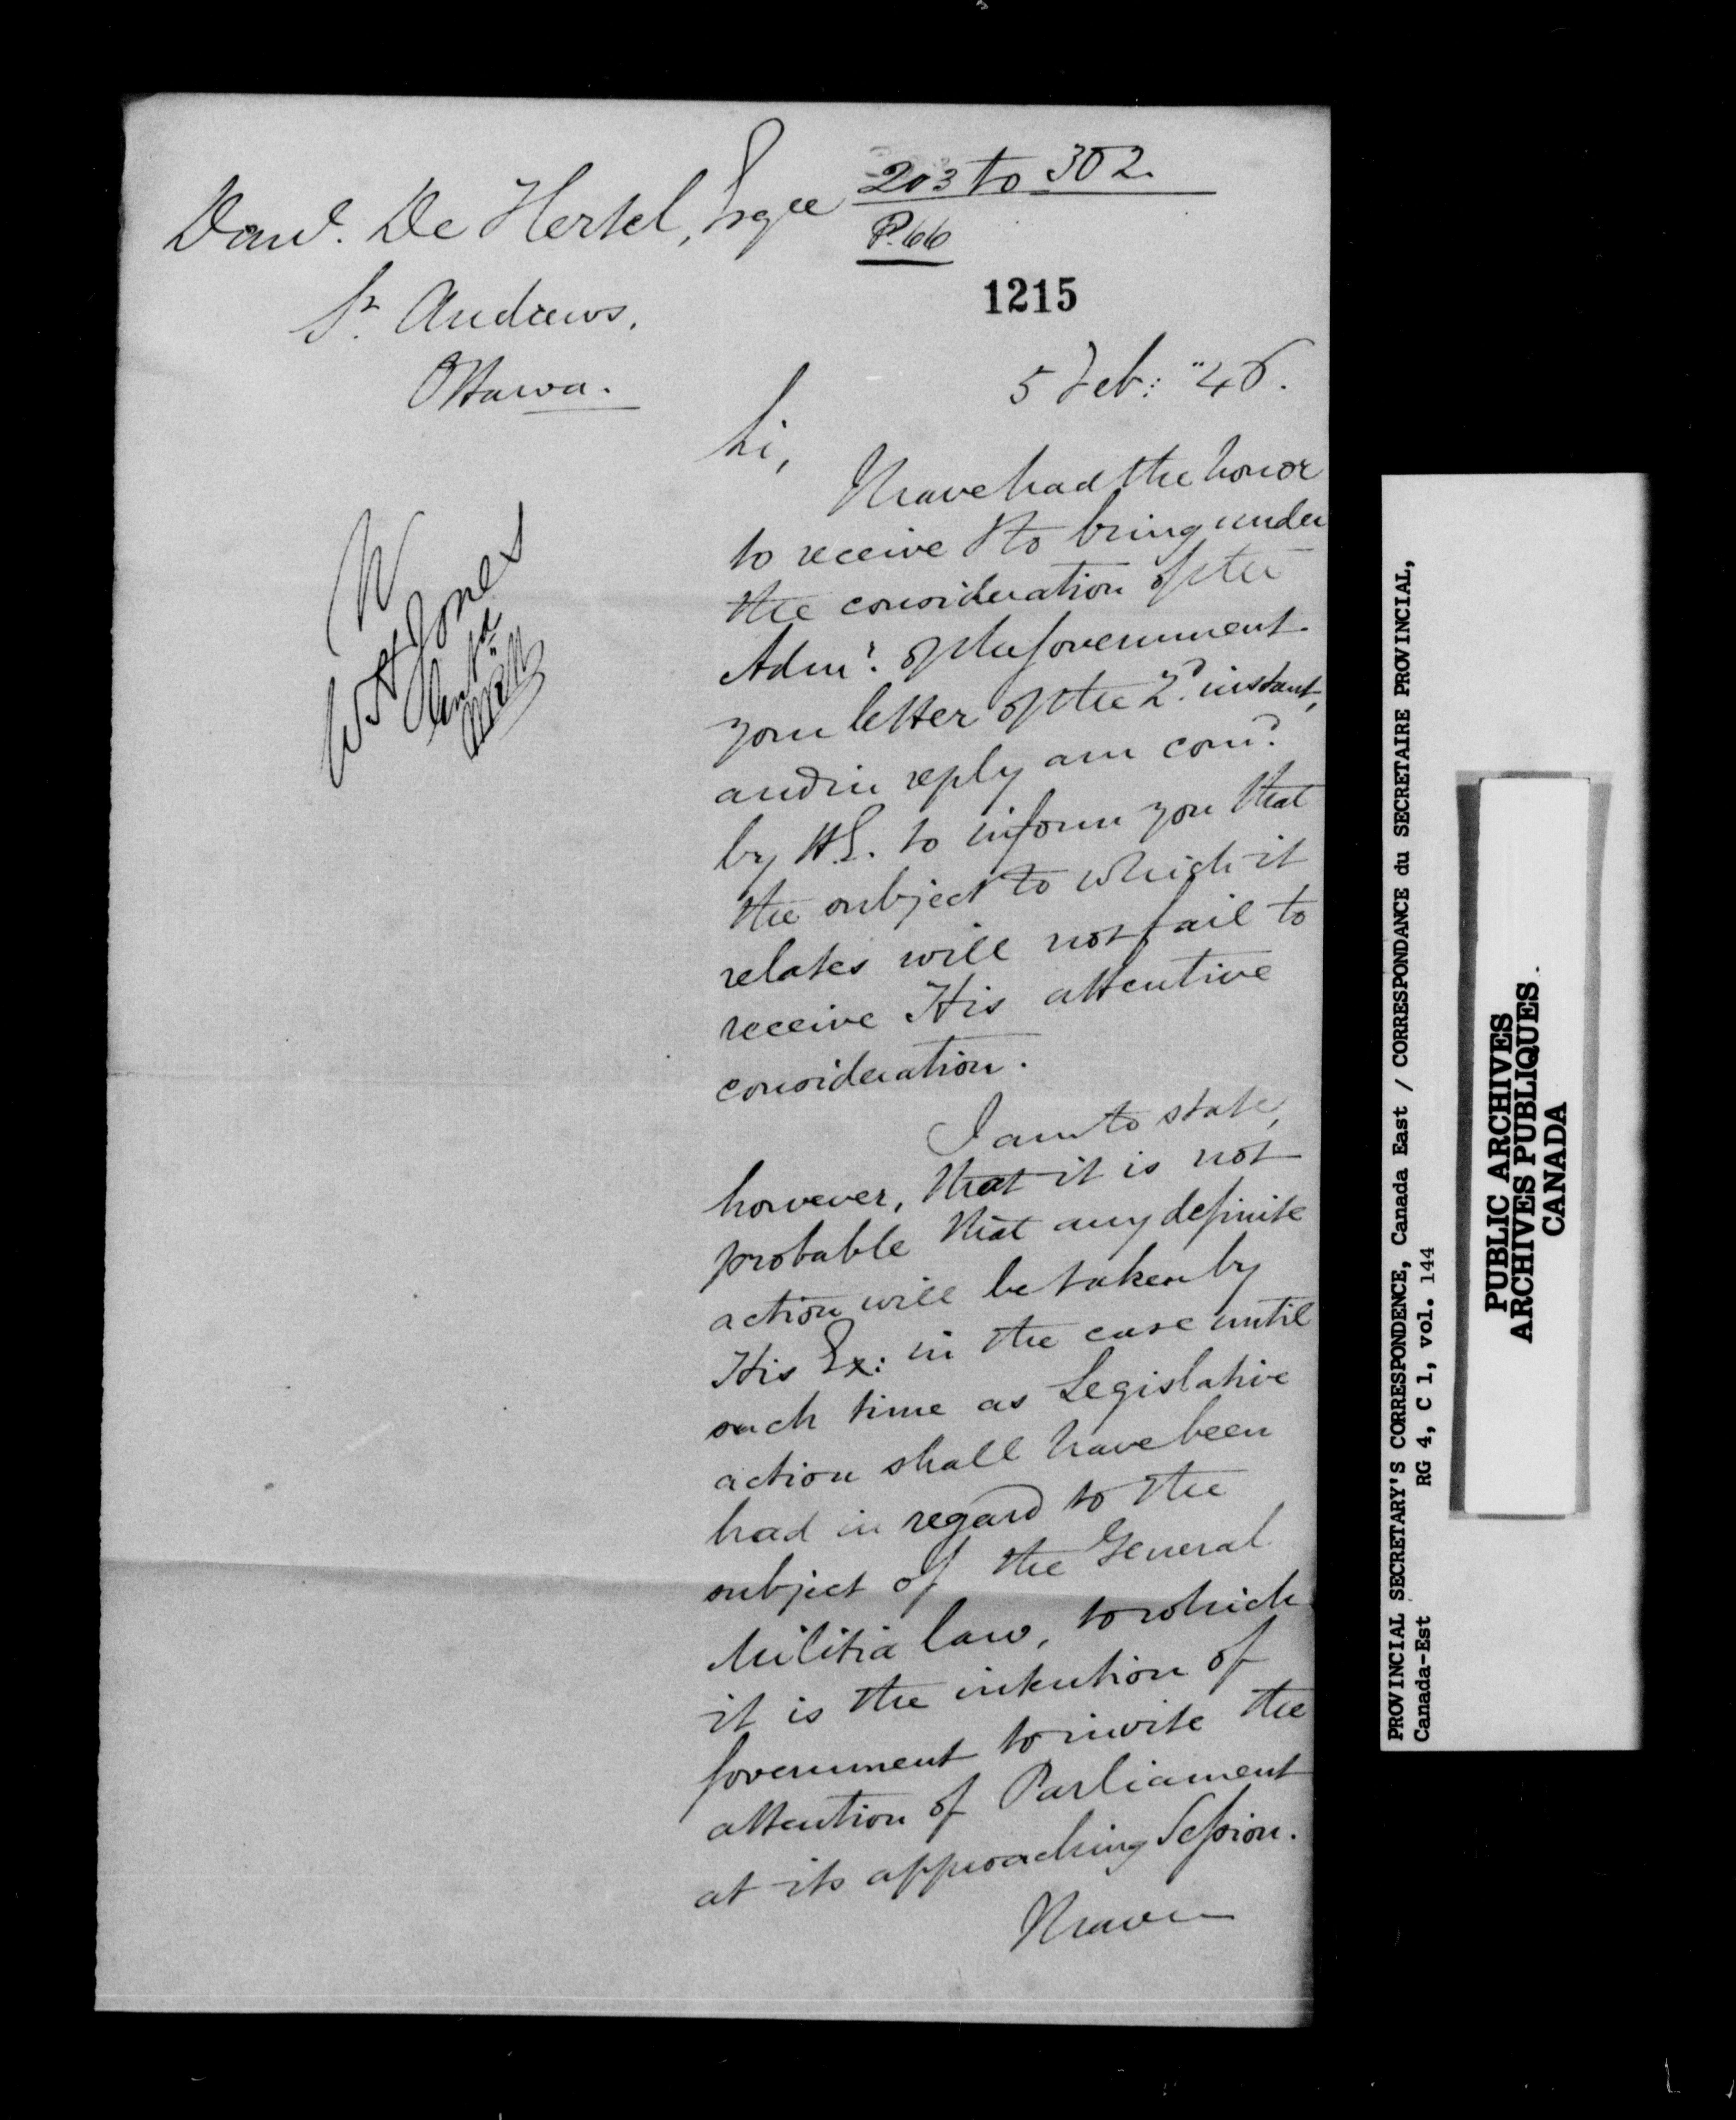 203 to 302.
P. 66
Danl. De Hertel, Esqre
St. Andrews,
Ottawa.
1215
5 Feb: "46.
Sir,
I have had the honor
to receive & to bring under
the consideration of the
Admr. of the Government
your letter of the 2d. instant,
and in reply am comd.
by H.E. to inform you that
the subject to which it
relates will not fail to
receive His attentive
consideration.
I am to state,
however, that it is not
probable that any definite
action will be taken by
His Ex: in the case until
such time as Legislative
action shall have been
had in regard to the
subject of the General
Militia law, to which
it is the intention of
Government to invite the
attention of Parliament
at its approaching Session.
I have
W H Jones
PROVINCIAL SECRETARY'S CORRESPONDENCE, Canada East / CORRESPONDANCE du SECRETAIRE PROVINCIAL,
Canada-Est RG 4, C 1, vol. 144
PUBLIC ARCHIVES
ARCHIVES PUBLIQUES
CANADA